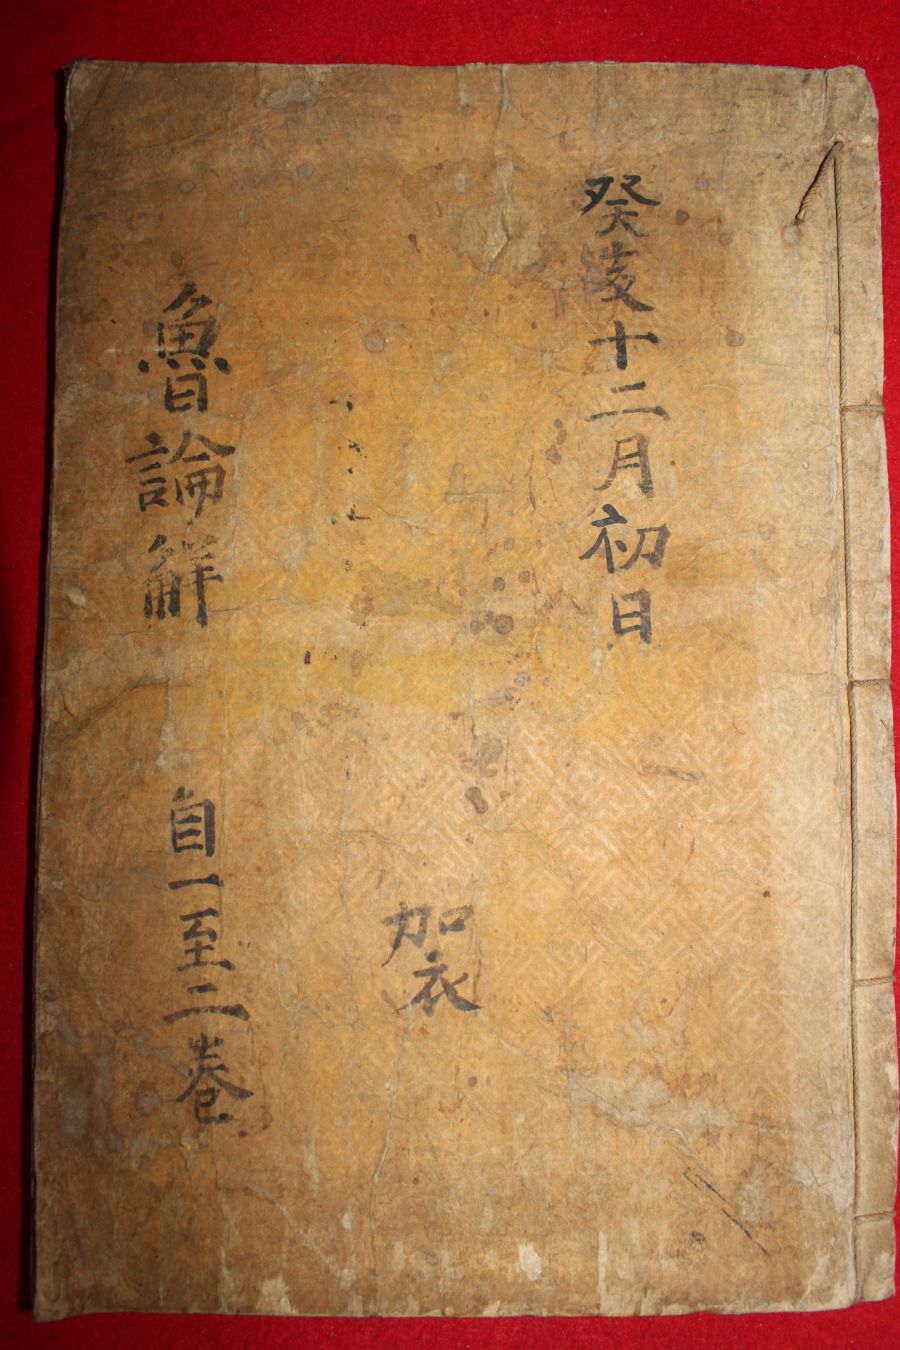 癸亥十二月初日
加衣
魯論解
自一至二卷